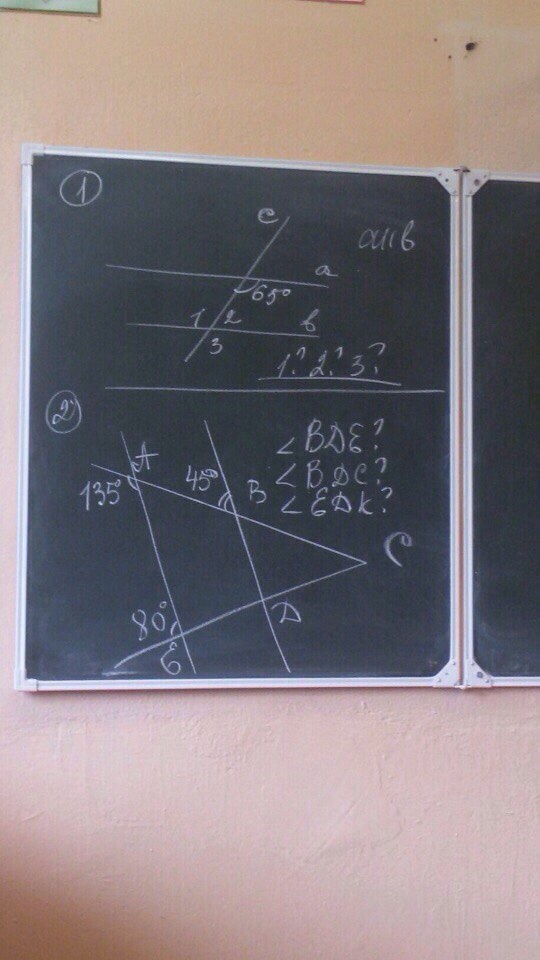 1
c
a || в
a
65°
1 2
в
3
1? 2? 3?
2
∠BDE?
A
45°
∠BDC?
135°
B
∠EDK?
C
80°
D
E